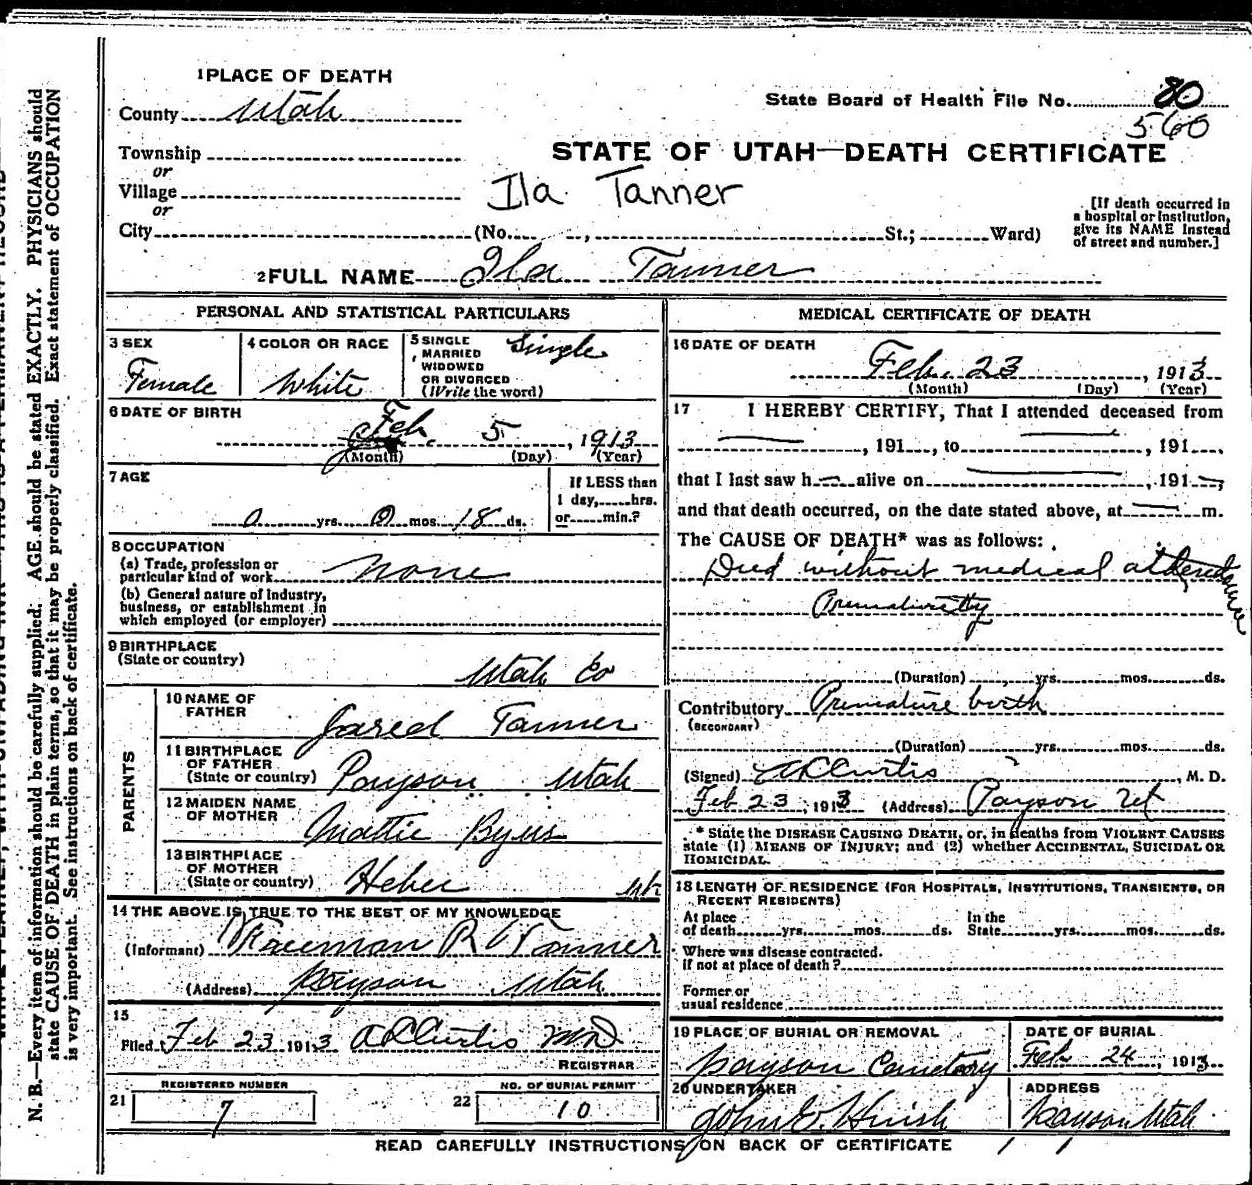 1 PLACE OF DEATH
County Utah
State Board of Health File No. 80
560
Township
or
Village
or
City (No. , St.; Ward)
STATE OF UTAH—DEATH CERTIFICATE
Ila Tanner
[If death occurred in a hospital or institution, give its NAME instead of street and number.]
2 FULL NAME Ila Tanner
PERSONAL AND STATISTICAL PARTICULARS
3 SEX
Female
4 COLOR OR RACE
White
5 SINGLE, MARRIED WIDOWED OR DIVORCED (Write the word)
Single
6 DATE OF BIRTH
Feb. 5, 1913
(Month) (Day) (Year)
7 AGE
0 yrs. 0 mos. 18 ds.
If LESS than
1 day, hrs.
or min.?
8 OCCUPATION
(a) Trade, profession or
particular kind of work None
(b) General nature of Industry,
business, or establishment in
which employed (or employer)
9 BIRTHPLACE
(State or country)
Utah Co
PARENTS
10 NAME OF FATHER
Jared Tanner
11 BIRTHPLACE OF FATHER
(State or country) Payson Utah
12 MAIDEN NAME OF MOTHER
Mattie Byers
13 BIRTHPLACE OF MOTHER
(State or country) Heber Ut
14 THE ABOVE IS TRUE TO THE BEST OF MY KNOWLEDGE
(Informant) Freeman R Tanner
(Address) Payson Utah
15
Filed Feb 23 1913 A L Curtis MD
REGISTRAR
REGISTERED NUMBER
21 7
NO. OF BURIAL PERMIT
22 10
MEDICAL CERTIFICATE OF DEATH
16 DATE OF DEATH
Feb. 23, 1913
(Month) (Day) (Year)
17 I HEREBY CERTIFY, That I attended deceased from
, 191 , to , 191 ,
that I last saw h alive on , 191 ,
and that death occurred, on the date stated above, at m.
The CAUSE OF DEATH* was as follows:
Died without medical attendance
(Duration) yrs. mos. ds.
Contributory Premature birth
(SECONDARY)
(Duration) yrs. mos. ds.
(Signed) A L Curtis, M. D.
Feb 23, 1913 (Address) Payson Ut
* State the DISEASE CAUSING DEATH, or, in deaths from VIOLENT CAUSES
state (1) MEANS OF INJURY; and (2) whether ACCIDENTAL, SUICIDAL OR
HOMICIDAL.
18 LENGTH OF RESIDENCE (FOR HOSPITALS, INSTITUTIONS, TRANSIENTS, OR
RECENT RESIDENTS)
At place of death yrs. mos. ds. In the State yrs. mos. ds.
Where was disease contracted.
if not at place of death?
Former or
usual residence
19 PLACE OF BURIAL OR REMOVAL
Payson Cemetery
DATE OF BURIAL
Feb 24, 1913
20 UNDERTAKER
John E. Huish
ADDRESS
Payson Utah
READ CAREFULLY INSTRUCTIONS ON BACK OF CERTIFICATE
N. B.—Every item of information should be carefully supplied. AGE should be stated EXACTLY. PHYSICIANS should
state CAUSE OF DEATH in plain terms, so that it may be properly classified. Exact statement of OCCUPATION
is very important. See instructions on back of certificate.